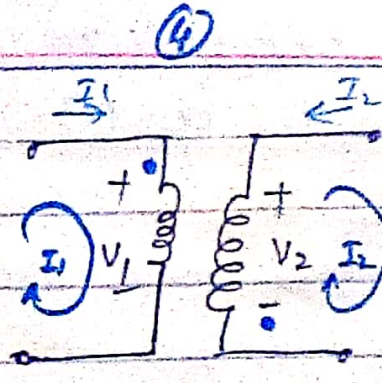 4
I1 I2
+ +
I1 V1 V2 I2
- -